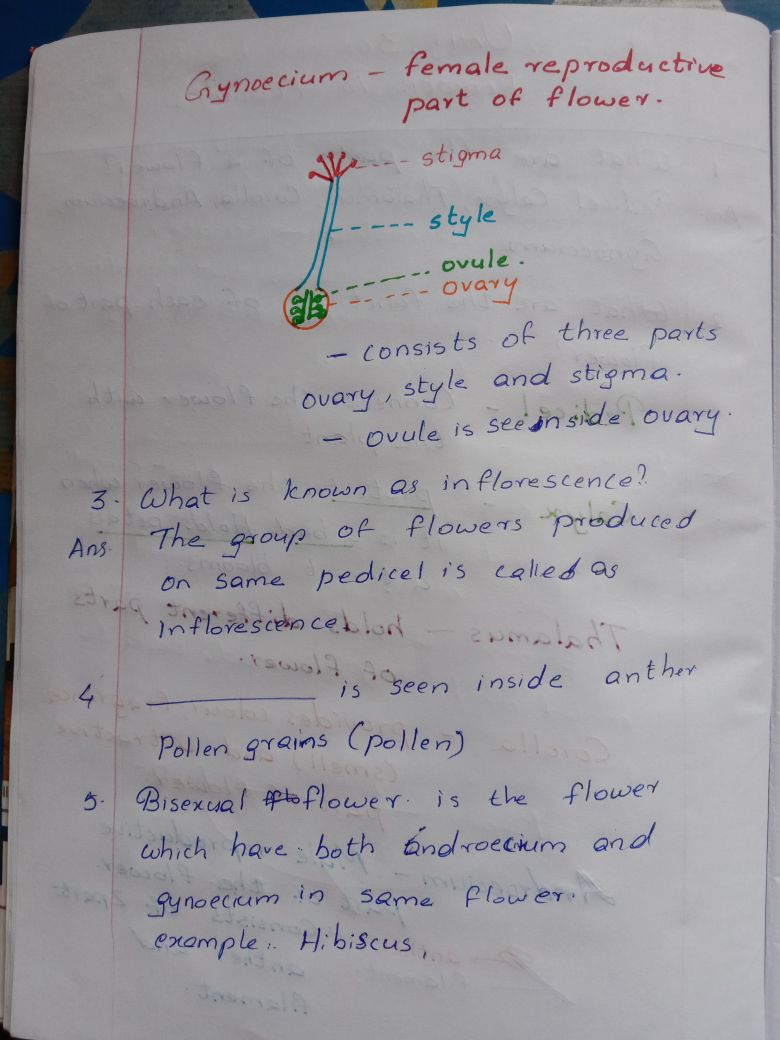 Gynoecium - female reproductive
part of flower.
stigma
style
ovule.
ovary
- consists of three parts
ovary, style and stigma.
- ovule is seen inside ovary.
3. What is known as inflorescence?
Ans. The group of flowers produced
on same pedicel is called as
inflorescence.
4 __________ is seen inside anther
Pollen grains (pollen)
5. Bisexual flower. is the flower
which have both androecium and
gynoecium in same flower.
example:. Hibiscus,